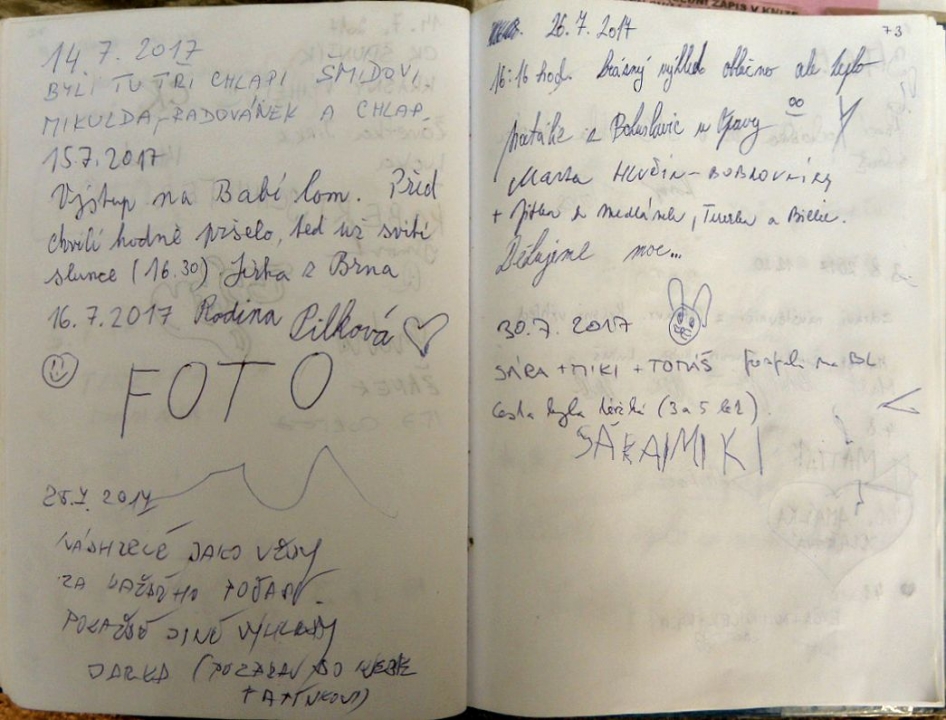 14.7.2017
BYLI TU TŘI CHLAPI ŠMIDOVI
MIKULDA, RADOVÁNEK A CHLAP.
15.7.2017
Výstup na Babí lom. Před
chvílí hodně pršelo, teď už svítí
slunce (16.30) Jirka z Brna
16.7.2017 Rodina Pilková
FOTO
2017
NÁDHERNÉ JAKO VŽDY
ZA KAŽDÉHO POČASÍ.
POKAŽDÉ JINÉ VÝHLEDY
DARKA (POZDRAV DO NEBE
TATÍNKOVI)
ZÁPIS V KNIZE
73
26.7.2017
16:16 hod. krásný výhled oblačno ale teplo
z Bohuslavic u Opavy
Marta HLUČÍN-BOBROVNÍKY
+ Jitka z Medlánek, a
Děkujeme moc...
30.7.2017
SÁRA + MIKI + TOMÁŠ BL
cesta byla těžká (3 a 5 let).
SÁRA MIKI